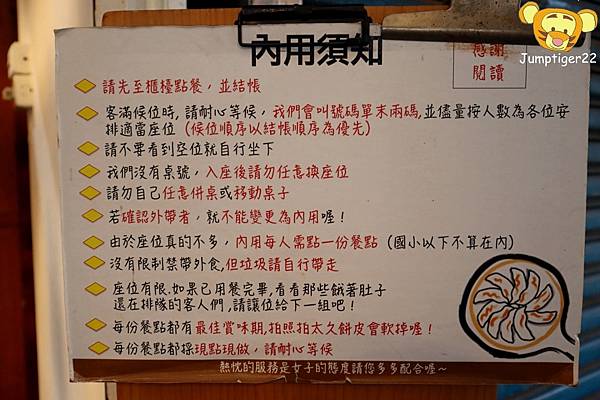 Jumptiger22
內用須知
感謝
閱讀
請先至櫃檯點餐，並結帳
客滿候位時, 請耐心等候，我們會叫號碼單末兩碼,並儘量按人數為各位安
排適當座位 (候位順序以結帳順序為優先)
請不要看到空位就自行坐下
我們沒有桌號，入座後請勿任意換座位
請勿自己任意併桌或移動桌子
若確認外帶者，就不能變更為內用喔！
由於座位真的不多，內用每人需點一份餐點 (國小以下不算在內)
沒有限制禁帶外食,但垃圾請自行帶走
座位有限.如果已用餐完畢,看看那些餓著肚子
還在排隊的客人們,請讓位給下一組吧！
每份餐點都有最佳賞味期,拍照拍太久餅皮會軟掉喔！
每份餐點都採現點現做，請耐心等候
熱忱的服務是女子的態度請您多多配合喔～